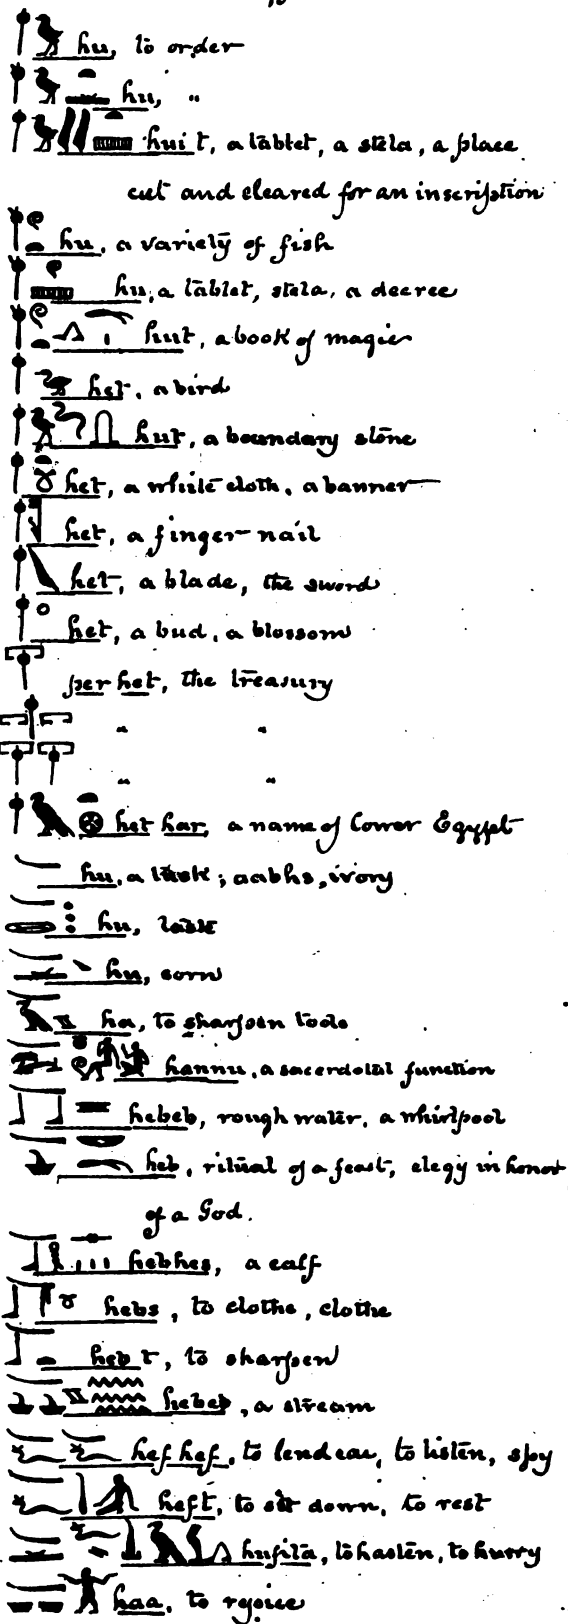 hu, to order
hu, "
huit, a tablet, a stela, a place
cut and cleared for an inscription
hu, a variety of fish
hu, a tablet, stela, a decree
hut, a book of magic
het, a bird
hut, a boundary stone
het, a white cloth, a banner
het, a finger nail
het, a blade, the sword
het, a bud, a blossom
per het, the treasury
" "
" "
het har, a name of Lower Egypt
hu, a tusk; aabhs, ivory
hu, task
hu, corn
ha, to sharpen tools
hannu, a sacerdotal function
hebeb, rough water, a whirlpool
heb, ritual of a feast, elegy in honor
of a God.
hebhes, a calf
hebs, to clothe, clothe
hebt, to sharpen
hebeb, a stream
hef hef, to lend ear, to listen, spy
heft, to sit down, to rest
hufita, to hasten, to hurry
haa, to rejoice